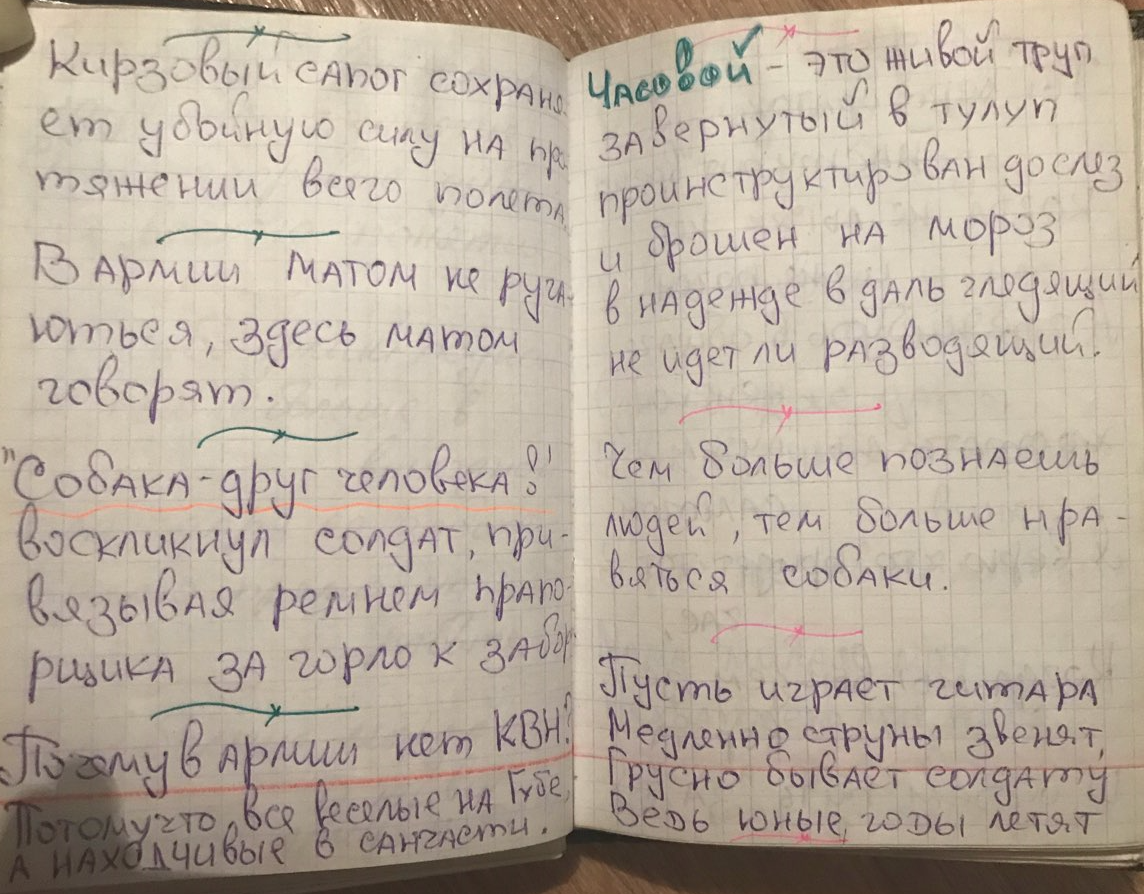 Кирзовый сапог сохраня
ет убойную силу на про
тяжении всего полета
В армии матом не руга-
ються, здесь матом
говорят.
"Собака-друг человека!"
воскликнул солдат, при-
вязывая ремнем прапо-
рщика за горло к забор
Почему в армии нет КВН?
Потому что, все веселые на Губе,
а находчивые в санчасти.
Часовой - это живой труп
завернутый в тулуп
проинструктирован до слез
и брошен на мороз
в надежде в даль глядящий
не идет ли разводящий.
Чем больше познаешь
людей, тем больше нра-
вяться собаки.
Пусть играет гитара
Медленно струны звенят,
Грусно бывает солдату
Ведь юные годы летят